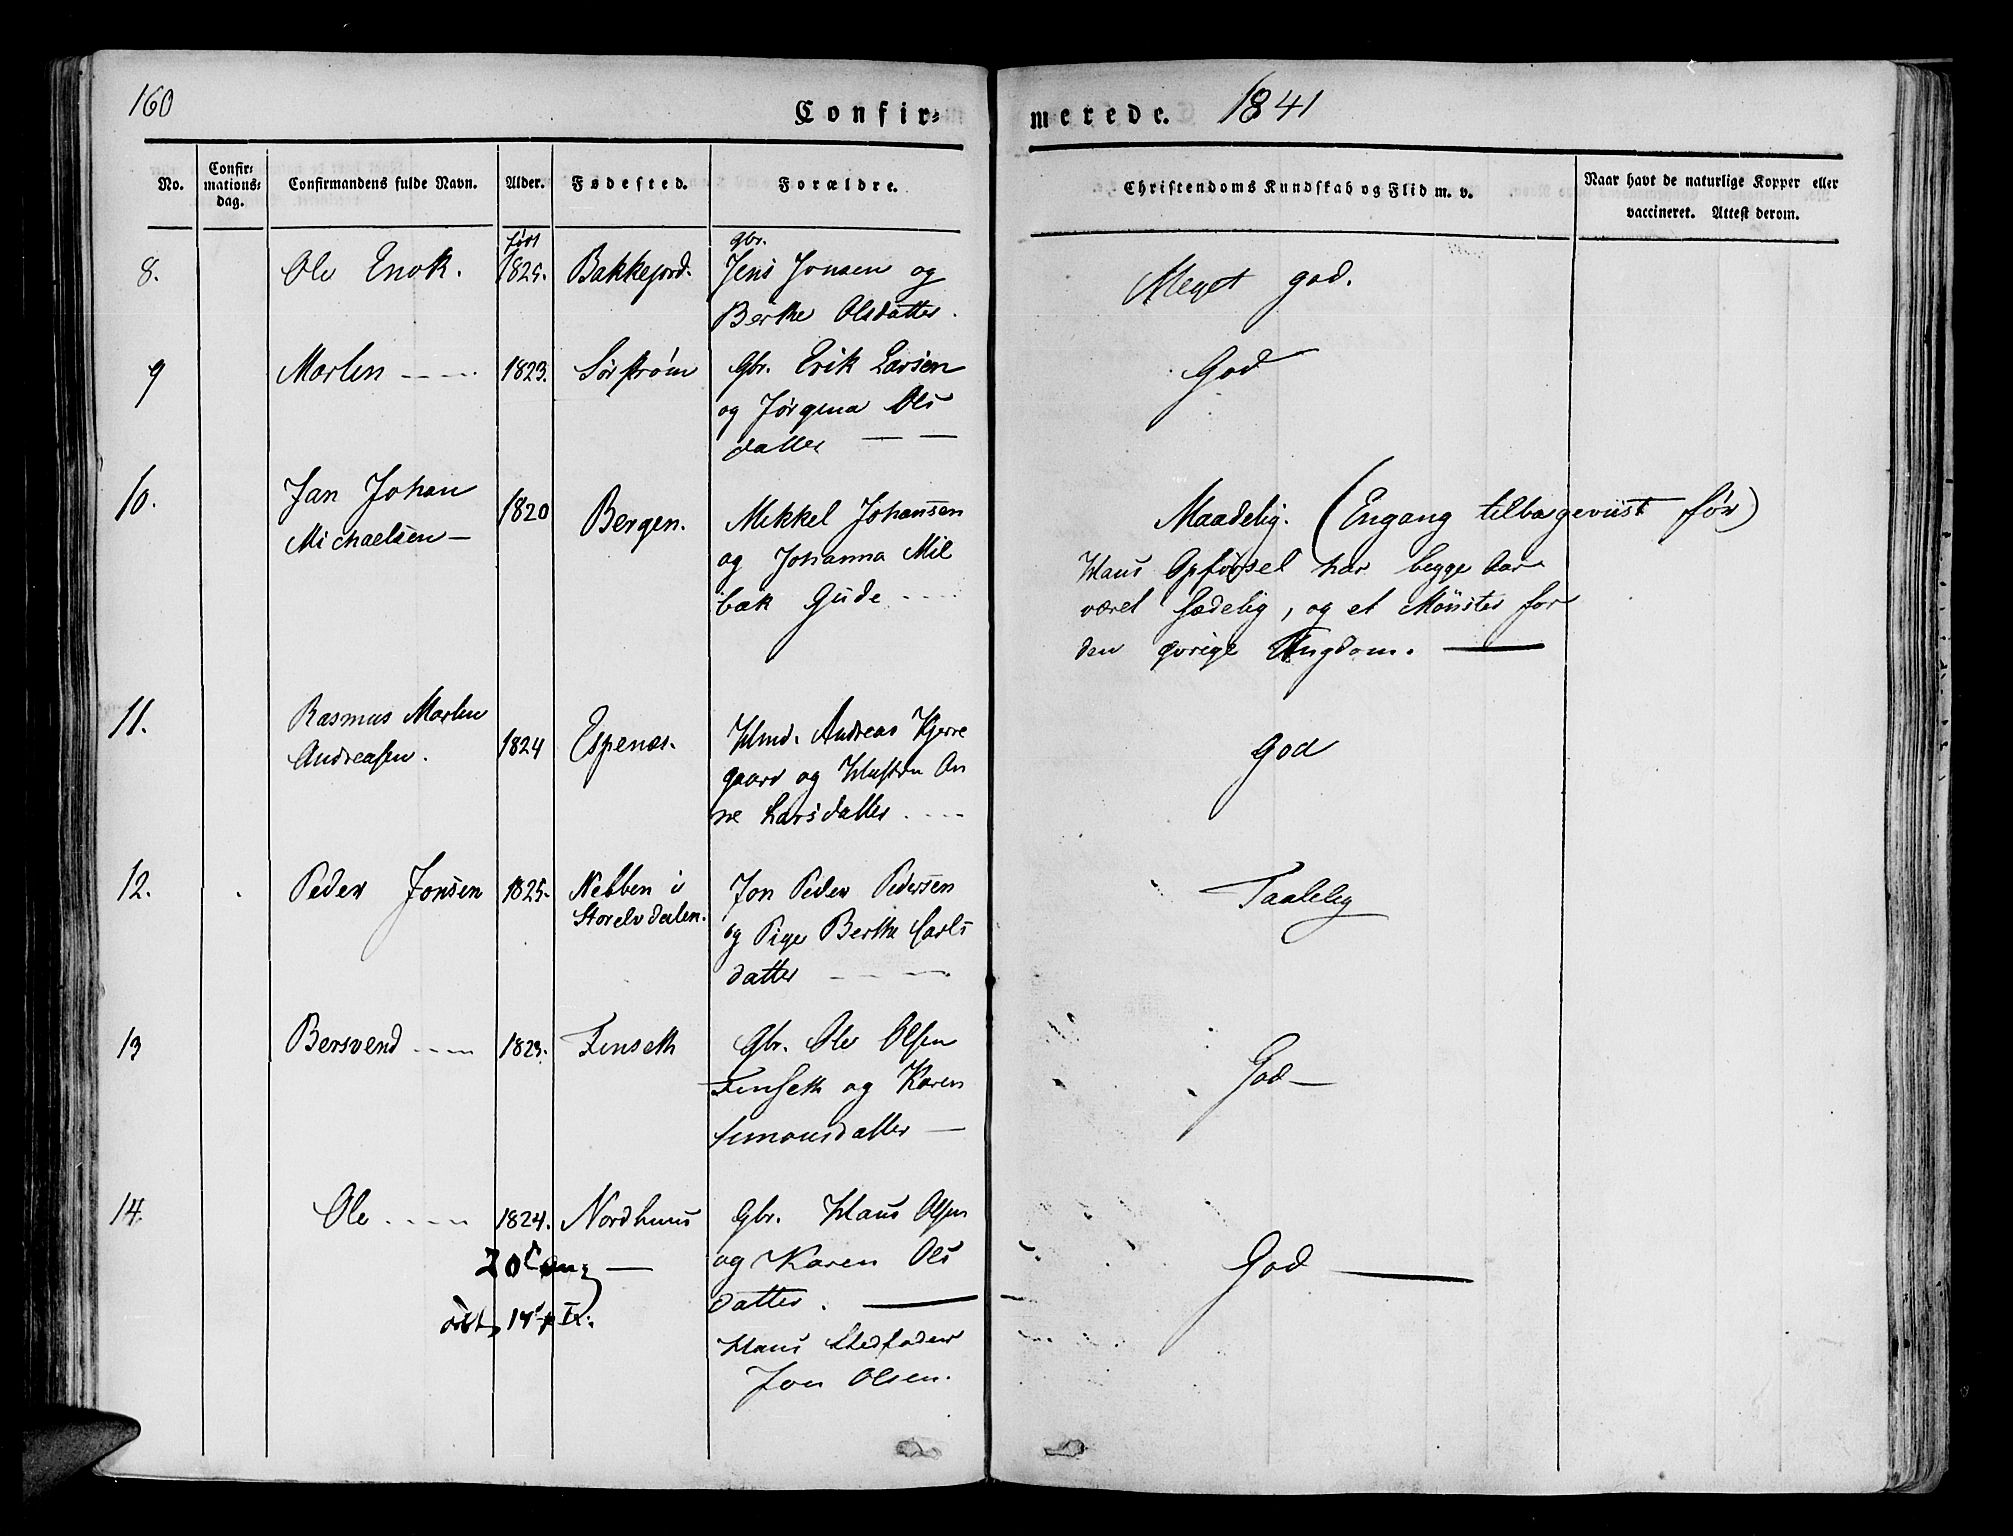 160
Confir=
merede. 1841
No.
Confir=
mations=
dag.
Confirmandens fulde Navn.
Alder.
Fødested.
Forældre.
Christendoms Kundskab og Flid m. v.
Naar havt de naturlige Kopper eller
vaccineret. Attest derom.
8.
Ole Enok.
født
1825.
Bakkejord.
Gbr.
Jens Jonsen og
Berthe Olsdatter.
Meget god.
9
Morten
1823.
Sörstrøm
Gbr. Erik Larsen
og Jørgina Ols
datter
God
10.
Jan Johan
Michaelsen
1820
Bergen.
Mikkel Johansen
og Johanna Mil
bæk Gude
Maadelig. (Engang tilbageviist før)
Hans Opførsel har begge Aar
været sædelig, og et Mönster for
den øvrige Ungdom.
11.
Rasmus Morten
Andreasen.
1824
Espenæs.
Hmd. Andreas Kjerre
gaard og Hustru An
ne Larsdatter.
God
12.
Peder Jonsen
1825.
Nebben i
Storelvdalen.
Jon Peder Pedersen
og Pige Berthe Carls
datter
Taalelig
13
Bersvend
1823.
Finseth
Gbr. Ole Olsen
Finseth og Karen
Simonsdatter
God
14.
Ole
1824.
Nordhuus
Gbr. Hans Olsen
og Karen Ols
datter.
Hans Stedfader
Jon Olsen.
God